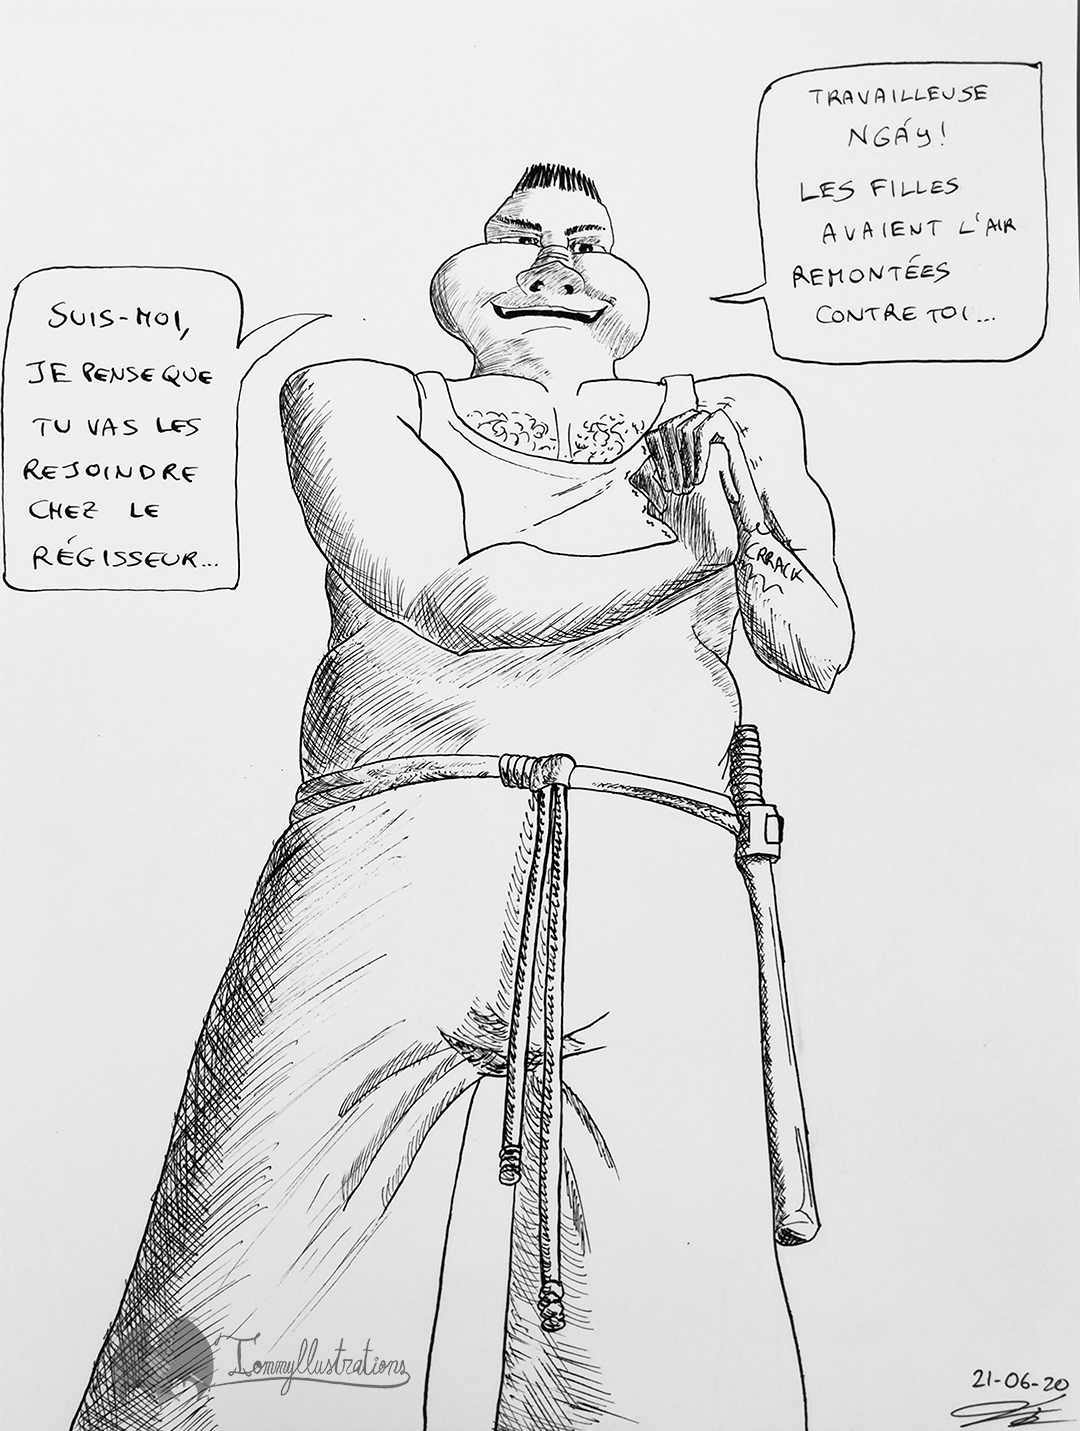 TRAVAILLEUSE
NGÁY!
LES FILLES
AVAIENT L'AIR
REMONTÉES
CONTRE TOI...
SUIS-MOI,
JE PENSE QUE
TU VAS LES
REJOINDRE
CHEZ LE
RÉGISSEUR...
CRRACK
Tommyllustrations
21-06-20